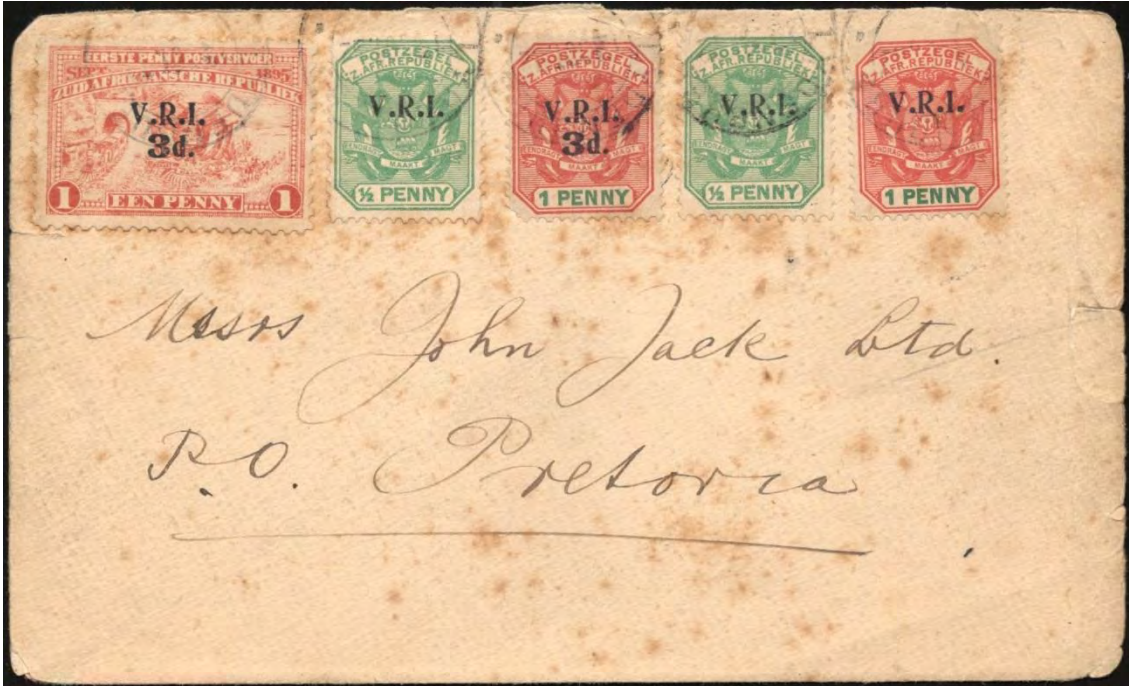 EERSTE PENNY POSTVERVOER
SEPT 1895
ZUID AFRIKAANSCHE REPUBLIEK
V.R.I.
3d.
1 EEN PENNY 1
POSTZEGEL
Z.AFR.REPUBLIEK
V.R.I.
EENDRAGT MAAKT MAGT
½ PENNY
POSTZEGEL
Z.AFR.REPUBLIEK
V.R.I.
3d.
EENDRAGT MAAKT MAGT
1 PENNY
POSTZEGEL
Z.AFR.REPUBLIEK
V.R.I.
EENDRAGT MAAKT MAGT
½ PENNY
POSTZEGEL
Z.AFR.REPUBLIEK
V.R.I.
EENDRAGT MAAKT MAGT
1 PENNY
Messrs John Jack Ltd.
P.O. Pretoria